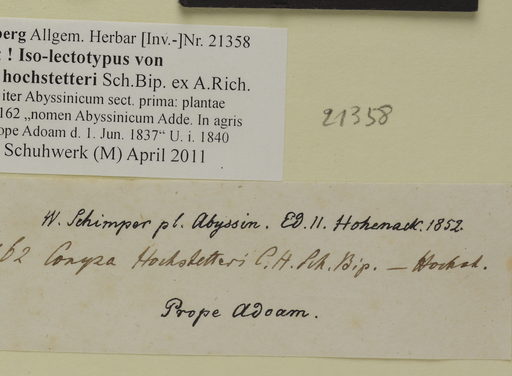 berg Allgem. Herbar [Inv.-]Nr. 21358
: ! Iso-lectotypus von
hochstetteri Sch.Bip. ex A.Rich.
iter Abyssinicum sect. prima: plantae
162 „nomen Abyssinicum Adde. In agris
ope Adoam d. 1. Jun. 1837“ U. i. 1840
Schuhwerk (M) April 2011
21358
W. Schimper pl. Abyssin. Ed. II. Hohenack. 1852.
162 Conyza Hochstetteri C.H. Sch. Bip. — Hochst.
Prope Adoam.